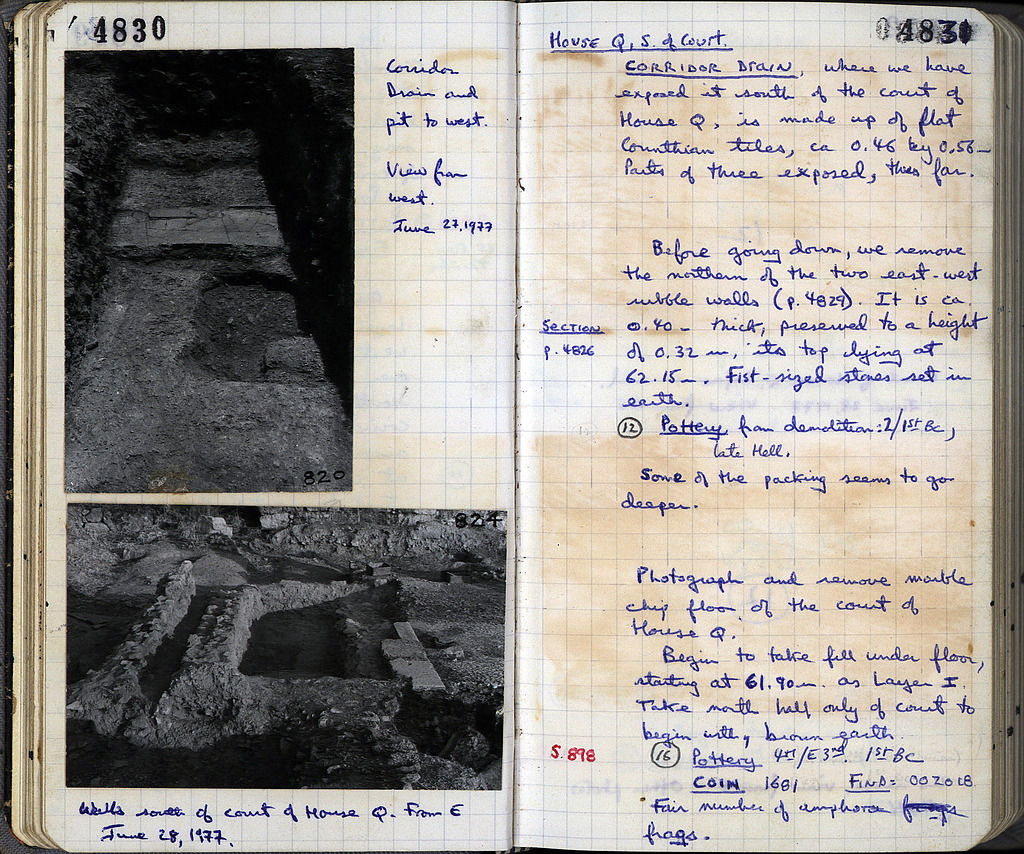 4830
Corridor
Drain and
pit to west.
View from
west.
June 27, 1977
820
824
Walls south of court of House Q. From E
June 28, 1977.
04831
House Q, S. of Court.
CORRIDOR DRAIN, where we have
exposed it south of the court of
House Q, is made up of flat
Corinthian tiles, ca 0.46 by 0.56 m
Parts of three exposed, thus far.
Before going down, we remove
the northern of the two east-west
rubble walls (p. 4829). It is ca.
SECTION
p. 4826
0.40 m thick, preserved to a height
of 0.32 m, its top lying at
62.15 m. Fist-sized stones set in
earth.
(12) Pottery from demolition: 2/1st BC,
late Hell.
Some of the packing seems to go
deeper.
Photograph and remove marble
chip floor of the court of
House Q.
Begin to take fill under floor,
starting at 61.90 m. as Layer I.
Take north half only of court to
begin with, brown earth.
S.898
(16) Pottery 4th/E 3rd. 1st BC
COIN 1681 FIND = 002018
Fair number of amphora frags
frags.